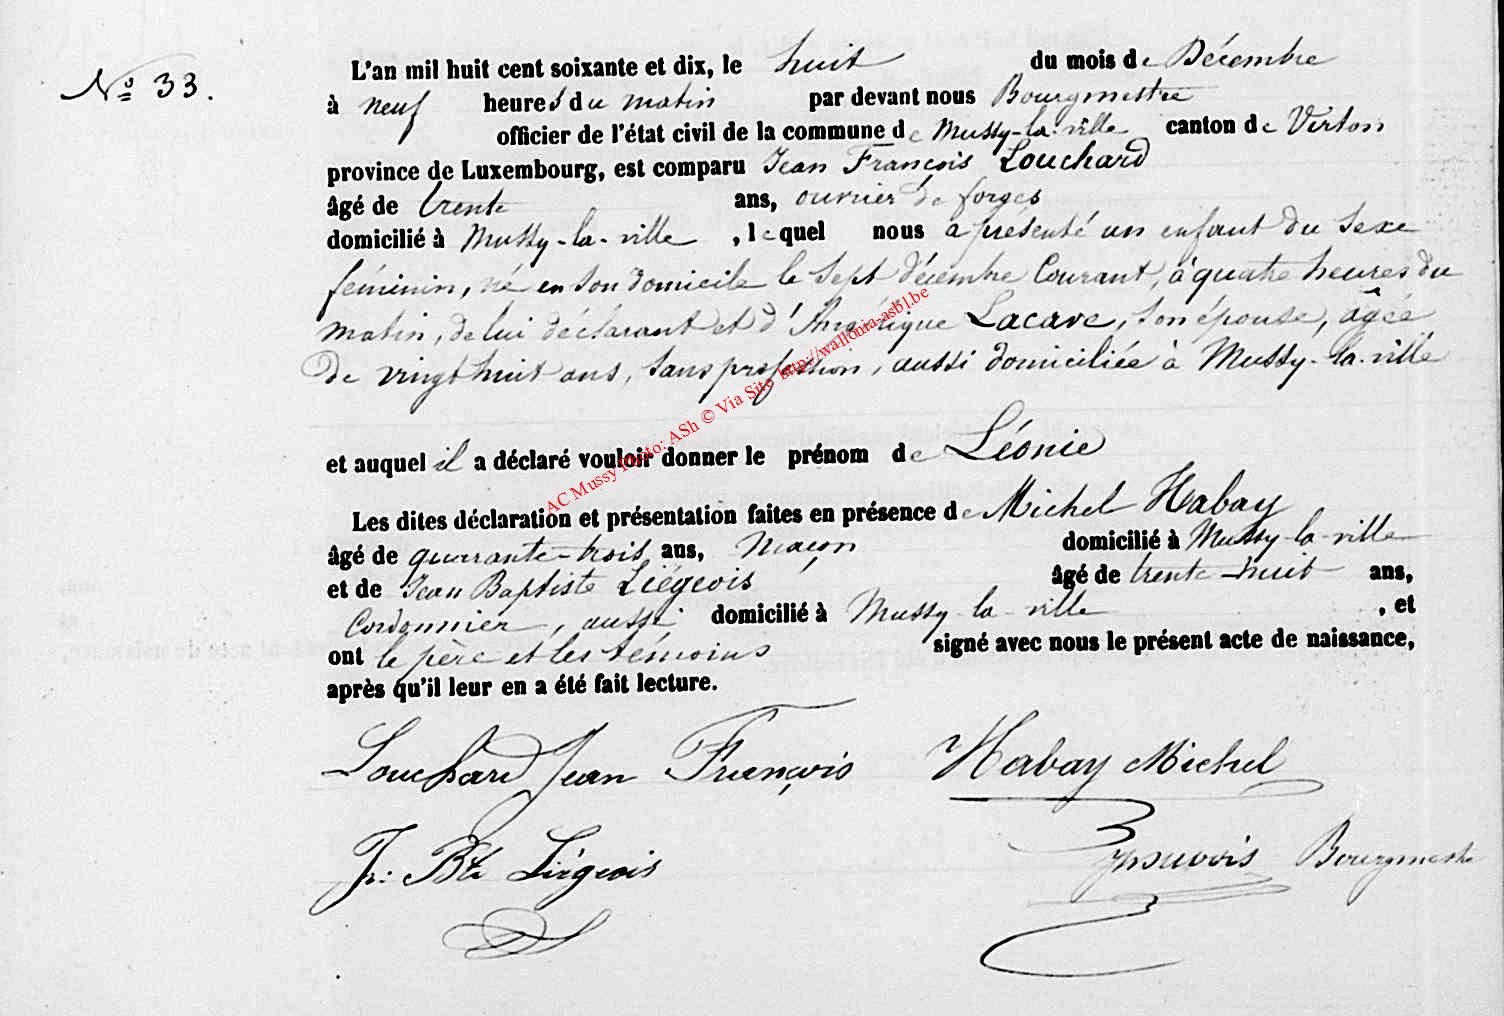 N° 33.
L'an mil huit cent soixante et dix, le huit du mois de Décembre
à neuf heures du matin par devant nous Bourgmestre
officier de l'état civil de la commune de Mussy-la-ville canton de Virton
province de Luxembourg, est comparu Jean François Louchard
âgé de trente ans, ouvrier de forges
domicilié à Mussy-la-ville , lequel nous a présenté un enfant du sexe
féminin, né en son domicile le sept décembre Courant, à quatre heures du
matin, de lui déclarant et d'Angélique Lacave, son épouse, âgée
de vingt huit ans, sans profession, aussi domiciliée à Mussy-la-ville
et auquel il a déclaré vouloir donner le prénom de Léonie
Les dites déclaration et présentation faites en présence de Michel Habay
âgé de quarante-trois ans, maçon domicilié à Mussy-la-ville
et de Jean Baptiste Liégeois âgé de trente-huit ans,
Cordonnier, aussi domicilié à Mussy-la-ville , et
ont le père et les témoins signé avec nous le présent acte de naissance,
après qu'il leur en a été fait lecture.
Louchard Jean François Habay Michel
Jn: Bte Liégeois Bourgmestre
AC Mussy Photo: ASh © Via Site http://wallonia-asbl.be